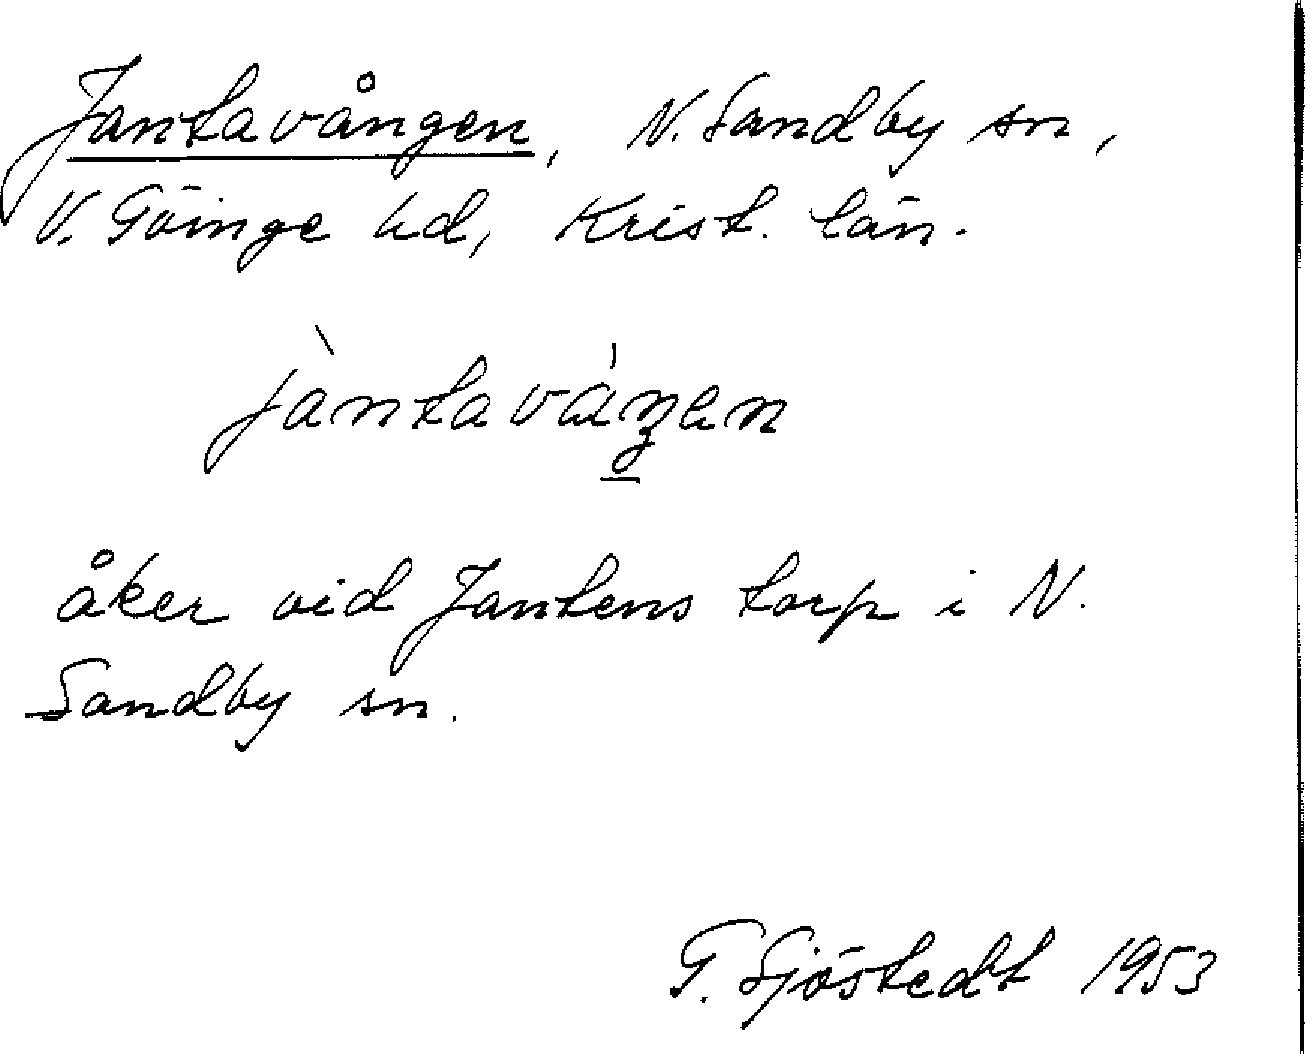 Jantavången, N. Sandby sn,
V. Göinge hd, Krist. län.
jàntaváŋen
åker vid Jantens torp i N.
Sandby sn.
G. Sjöstedt 1953